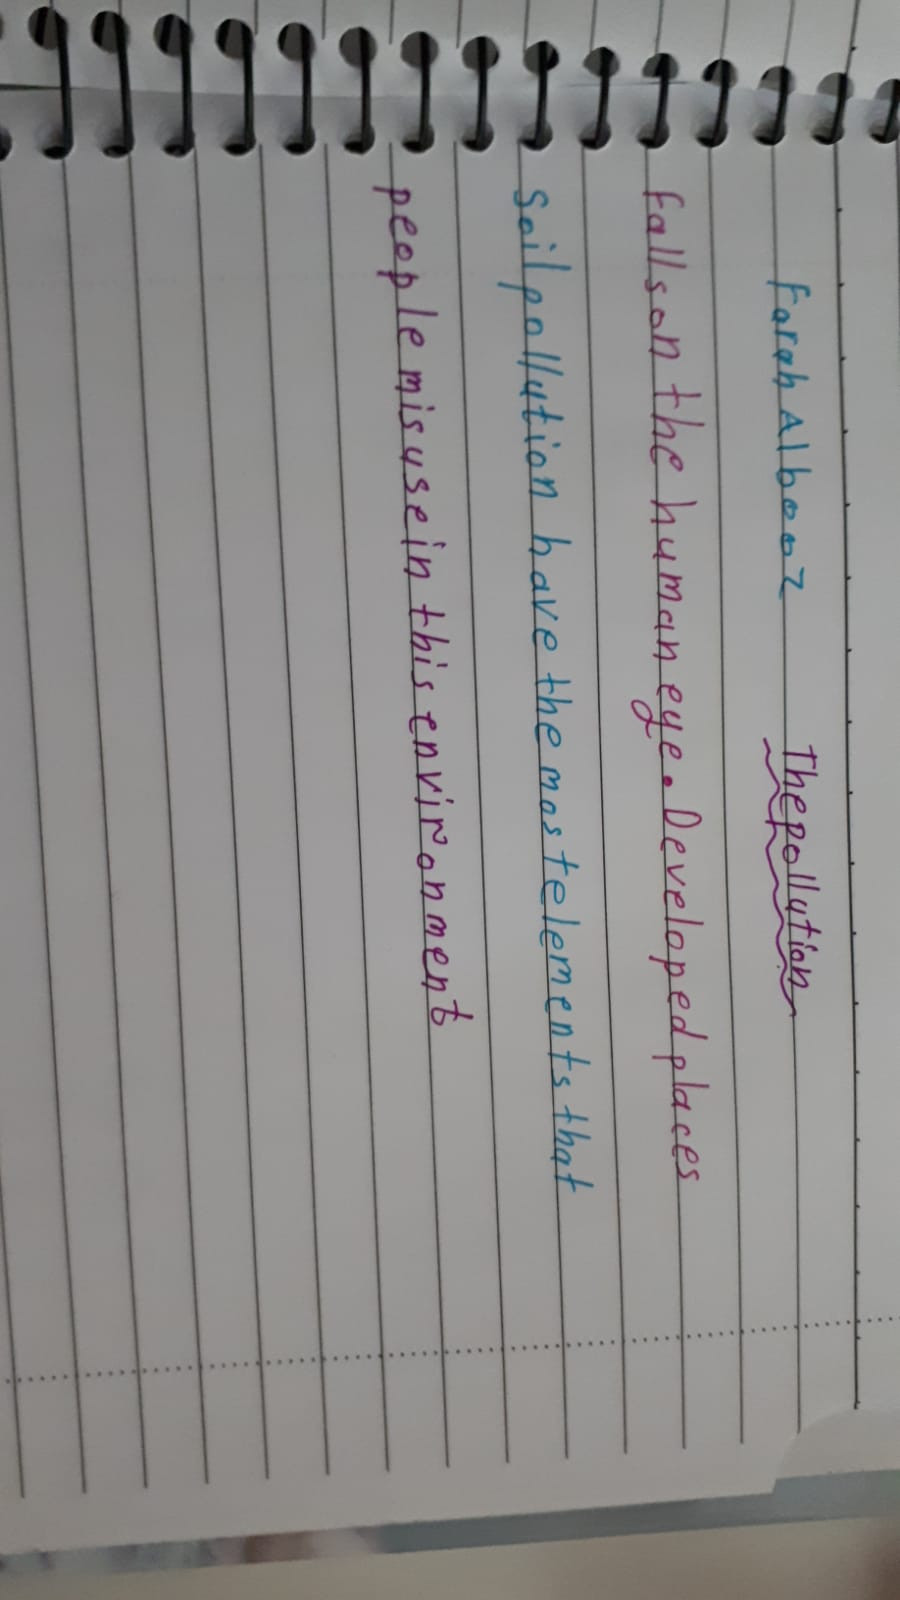 Farah Albooz The pollution
falls on the human eye. Developed places
Soil pollution have the most elements that
people misuse in this environment